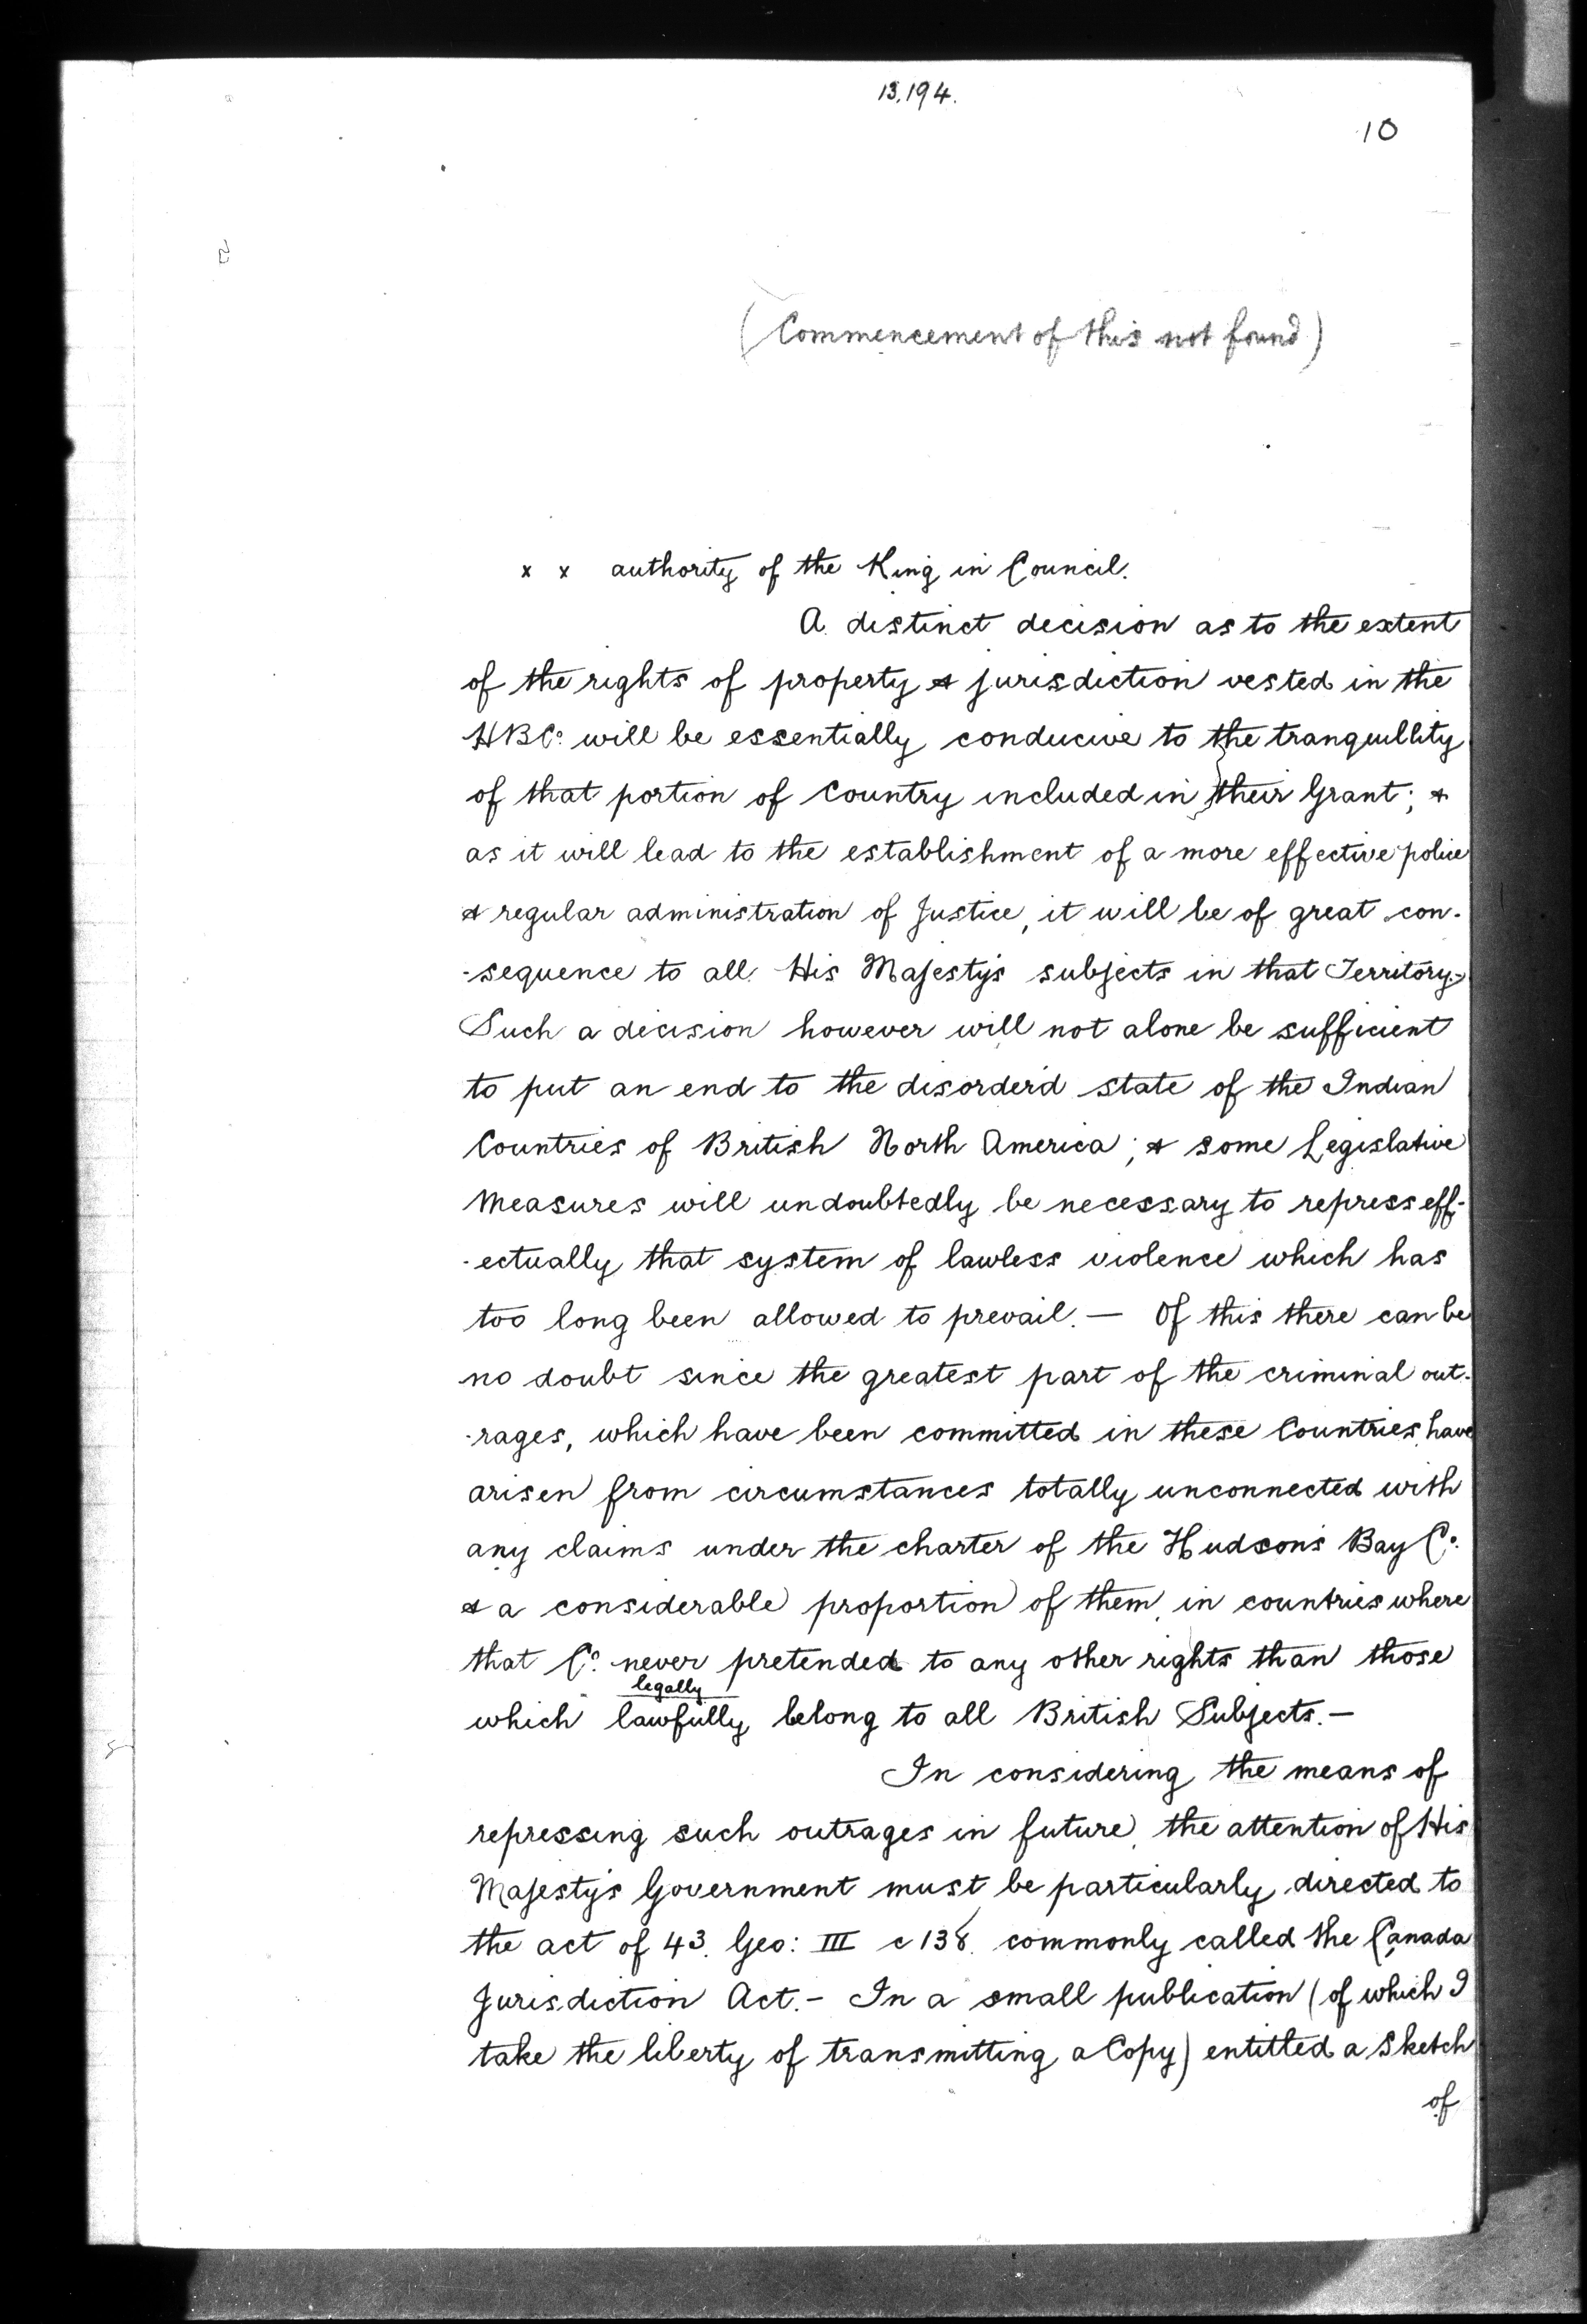 13,194.
10
(Commencement of this not found)
x x authority of the King in Council.
A distinct decision as to the extent
of the rights of property & jurisdiction vested in the
HBCo. will be essentially conducive to the tranquillity
of that portion of Country included in their Grant; &
as it will lead to the establishment of a more effective police
& regular administration of Justice, it will be of great con-
-sequence to all His Majesty's subjects in that Territory.-
Such a decision however will not alone be sufficient
to put an end to the disorder'd state of the Indian
Countries of British North America; & some Legislative
Measures will undoubtedly be necessary to repress eff-
-ectually that system of lawless violence which has
too long been allowed to prevail. — Of this there can be
no doubt since the greatest part of the criminal out-
-rages, which have been committed in these Countries, have
arisen from circumstances totally unconnected with
any claims under the charter of the Hudson's Bay Co.
& a considerable proportion of them, in countries where
that Co. never pretended to any other rights than those
legally
which lawfully belong to all British Subjects. —
In considering the means of
repressing such outrages in future, the attention of His
Majesty's Government must be particularly directed to
the act of 43. Geo: III c 138. commonly called the Canada
Jurisdiction Act. - In a small publication (of which I
take the liberty of transmitting a Copy) entitled a Sketch
of